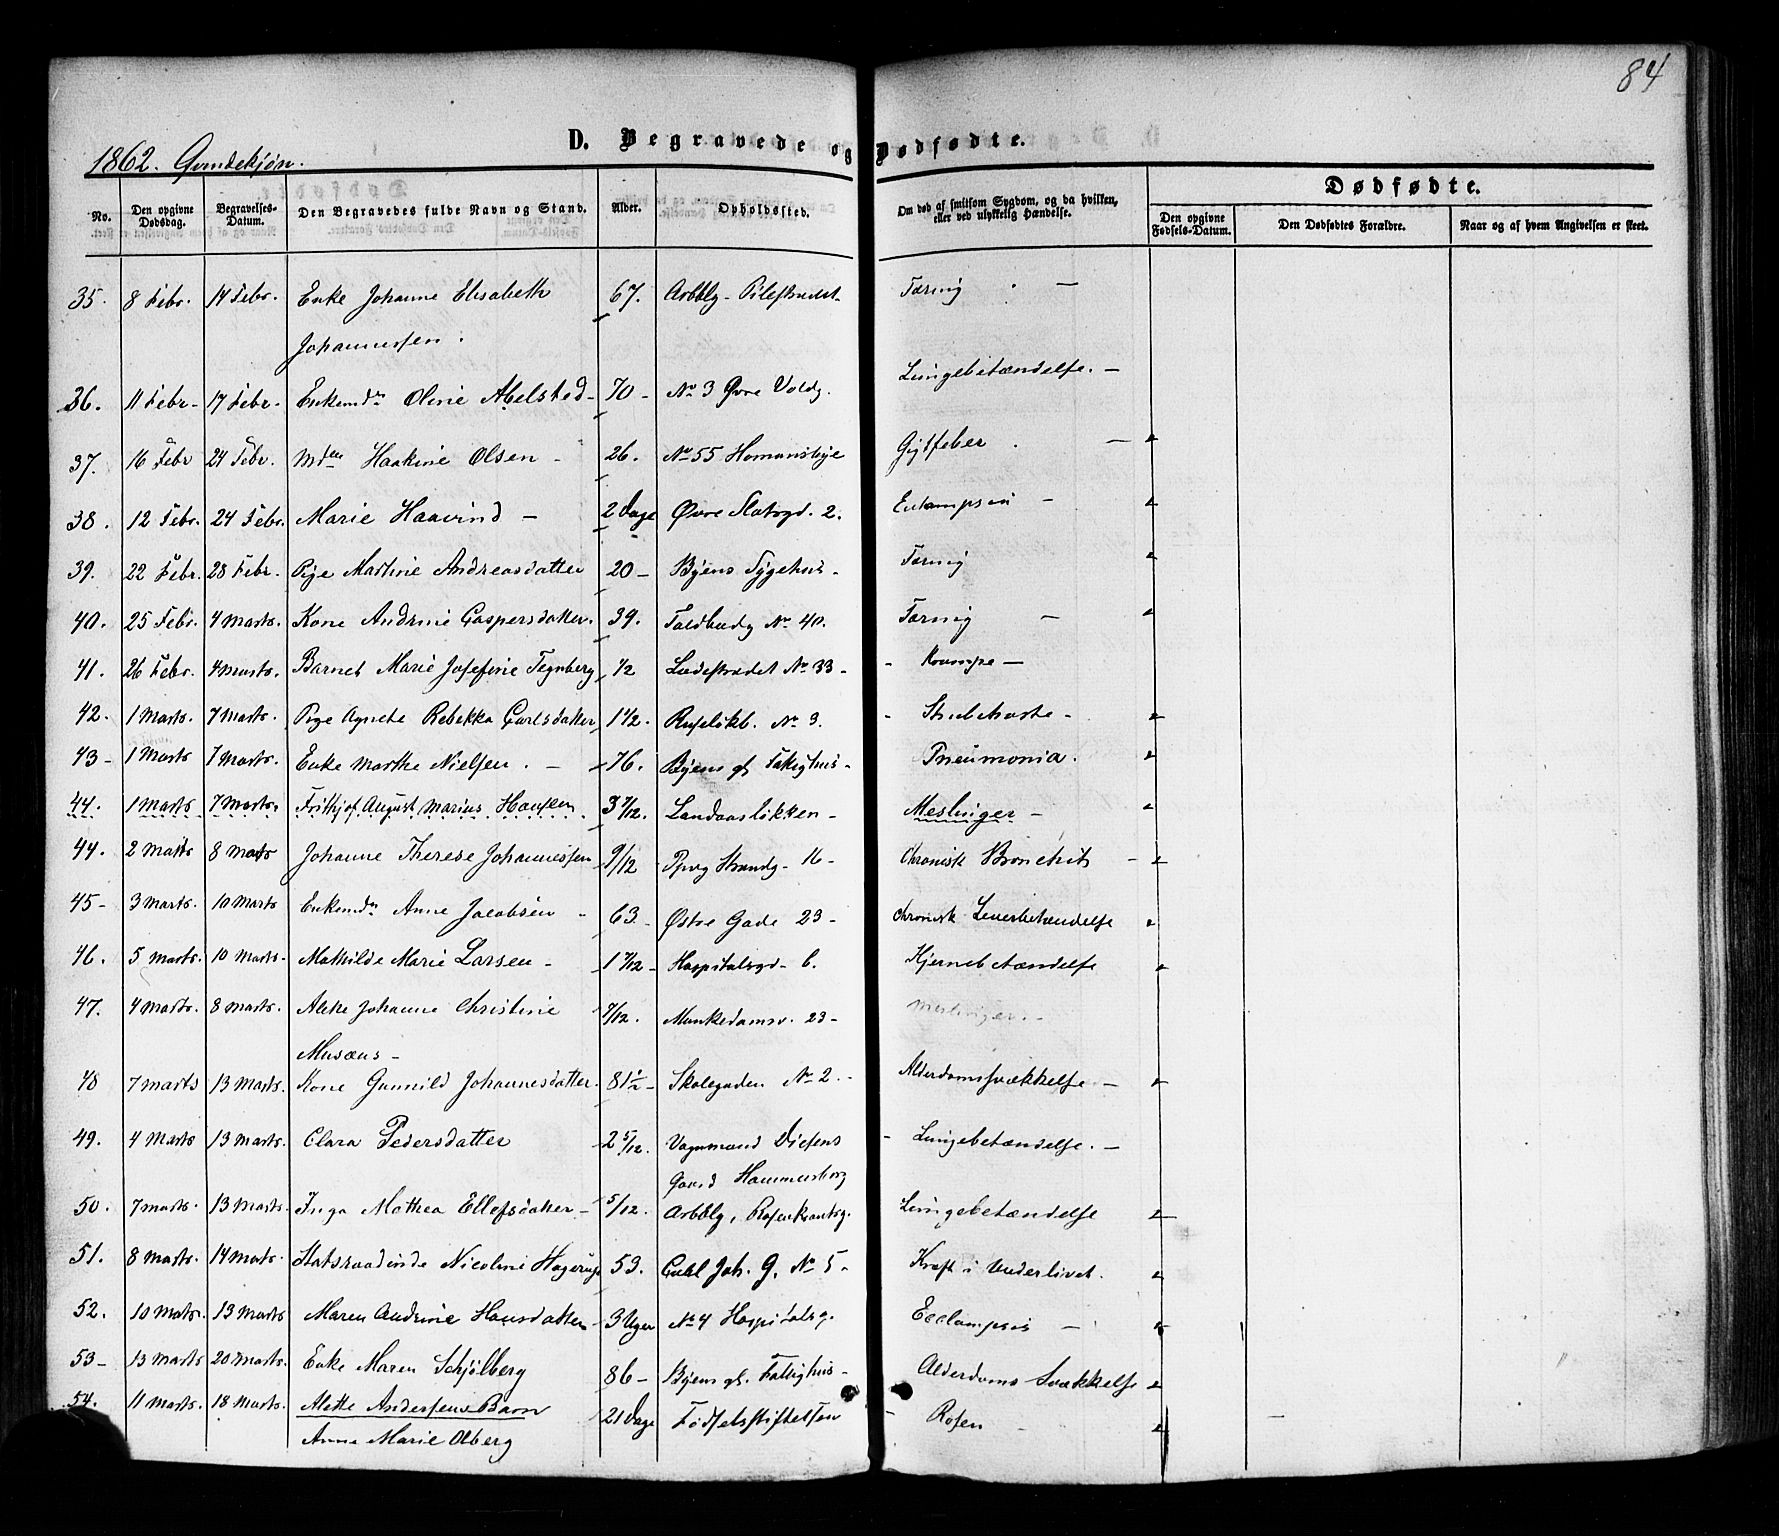 84
D. Begravede og Dødfødte.
1862. Qvindekjøn.
Dødfødte.
No. Den opgivne Dødsdag. Begravelses-Datum. Den Begravedes fulde Navn og Stand. Alder. Opholdssted. Om død af smitsom Sygdom, og da hvilken, eller ved ulykkelig Hændelse. Den opgivne Fødsels-Datum. Den Dødfødtes Forældre. Naar og af hvem Angivelsen er skeet.
35. 8 Febr. 14 Febr. Enke Johanne Elisabeth 67. Arbblg. Pilestrædet Tæring -
Johannessen.
36. 11 Febr. 17 Febr. Enkemdn Oline Abelsted - 70 - No 3 Øvre Voldg. Lungebetændelse. -
37. 16 Febr 24 Febr. Mden Haakine Olsen - 26. No 55 Homansbye -
38. 12 Febr. 24 Febr. Marie Haavind - 2 Dage Øvre Slotsgd. 2. -
39. 22 Febr. 28 Febr. Pige Martine Andreasdatter 20 - Byens Sygehus - Tæring
40. 25 Febr. 4 Marts. Kone Andrine Caspersdatter. 39. Toldbudg No 40. Tæring -
41. 26 Febr. 4 Marts. Barnet Marie Josefine Tegnberg 1/2 No 33 - Krampe -
42. 1 Marts. 7 Marts. Pige Agnete Rebekka Carlsdatter 1 1/2. Ruseløkb. No 3. -
43 - 1 Marts 7 Marts. Enke Marthe Nielsen. - 76. Byens gl Fattighus - Pneumonia.
44. 1 Marts 7 Marts. Frithjof August Marius Hansen 3 7/12. Landaasløkken - Meslinger -
44. 2 Marts 8 Marts Johanne Therese Johannessen 9/12 Strandg - 16 - Chronisk Bronchit -
45 - 3 Marts. 10 Marts Enkemdn Anne Jacobsen - 63 - Østre Gade 23 - Chronisk Leverbetændelse
46. 5 Marts. 10 Marts. Mathilde Marie Larsen - 1 7/12 - Hospitalsgd - 6. Hjernebetændelse
47. 4 Marts. 8 Marts. Johanne Christine 7/12. Munkedamsv. 23 - Meslinger. -
Musæus -
48 7 Marts 13 Marts. Kone Gunnild Johannesdatter. 81 1/2 - Skolegaden No 2. - Alderdomssvækkelse -
49. 4 Marts 13 Marts. Clara Pedersdatter 2 5/12. Vognmand Lungebetændelse. -
Gaard Hammersborg
50. 7 Marts. 13 Marts. Inga Mathea Ellefsdatter - 5/12. Arbblg, Rosenkrantsg. Lungebetændelse
51. 8 Marts. 14 Marts. Statsraadinde Nicoline Hagerup 53. Carl Joh. G. No 5 - Kræft i Underlivet.
52. 10 Marts. 13 Marts Maren Andrine Hansdatter 3 Uger No 4 Hospitalsg. Ecclampsis -
53 - 13 Marts 20 Marts. Enke Maren Schjølberg 86 - Byens gl. Fattighus - Alderdoms Svækkelse
54. 11 Marts. 18 Marts. Mette Andersens Barn 21 Dage Fødselsstiftelsen Rosen
Anne Marie Olberg